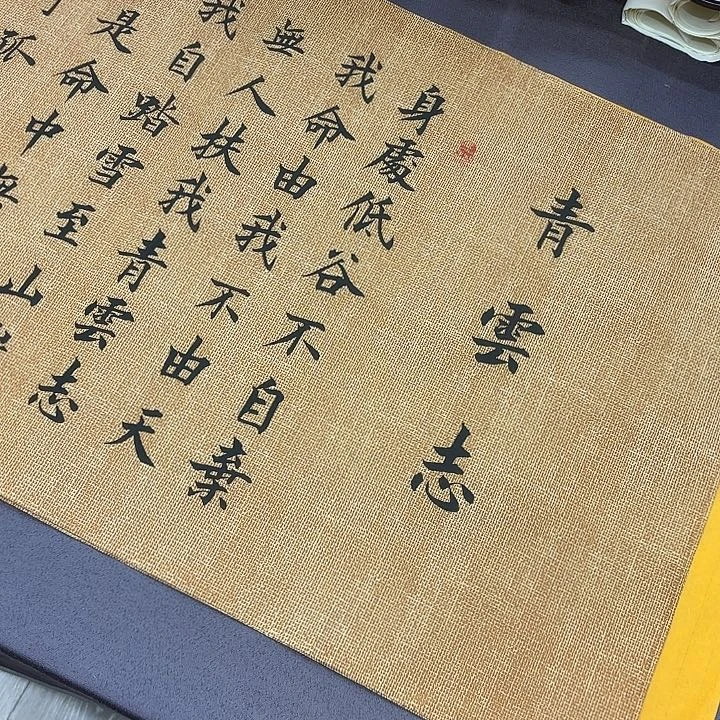 青雲志
身處低谷不自棄
我命由我不由天
無人扶我青雲志
我自踏雪至山
是命中無